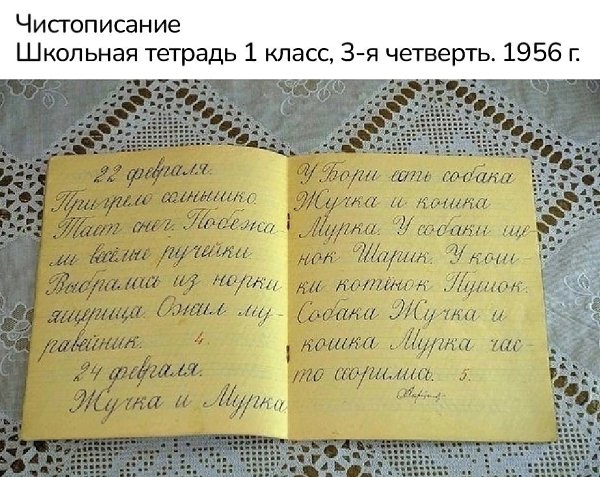 Чистописание
Школьная тетрадь 1 класс, 3-я четверть. 1956 г.
22 февраля.
Пригрело солнышко.
Тает снег. Побежа-
ли весёлые ручейки.
Выбралась из норки
ящерица. Ожил му-
равейник. 4.
24 февраля.
Жучка и Мурка.
У Бори есть собака
Жучка и кошка
Мурка. У собаки ще-
нок Шарик. У кош-
ки котёнок Пушок.
Собака Жучка и
кошка Мурка час-
то ссорились. 5.